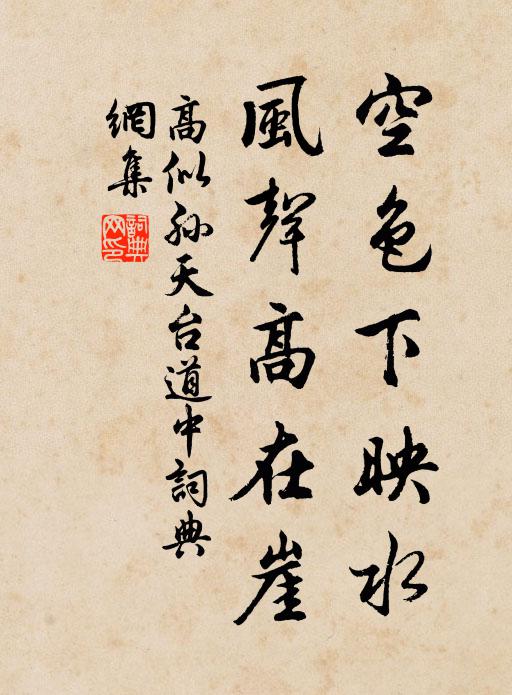 空色下映水
風聲高在崖
高似孫天台道中詞典
網集
詞典網印